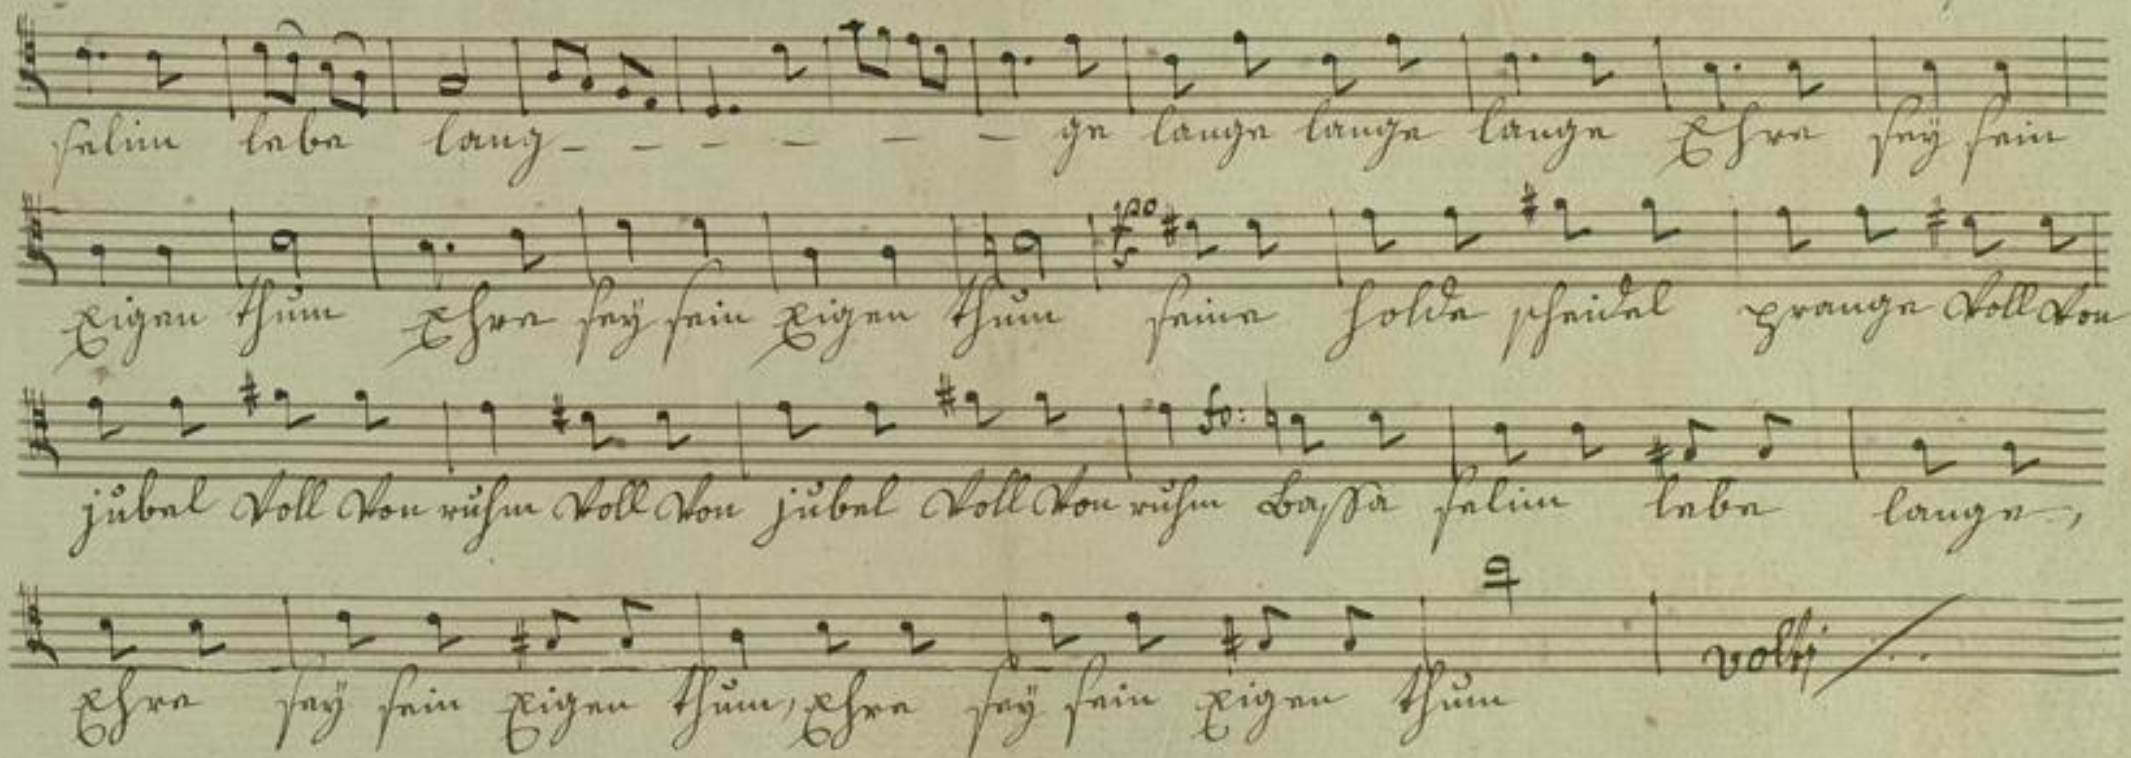 selim lebe lang - - - - - - ge lange lange lange Ehre sey sein
po
Eigen thum Ehre sey sein Eigen thum seine holde scheidel prange Voll Von
fo:
jubel Voll Von ruhm Voll Von jubel Voll Von ruhm Bassa selim lebe lange,
volti
Ehre sey sein Eigen thum, Ehre sey sein Eigen thum